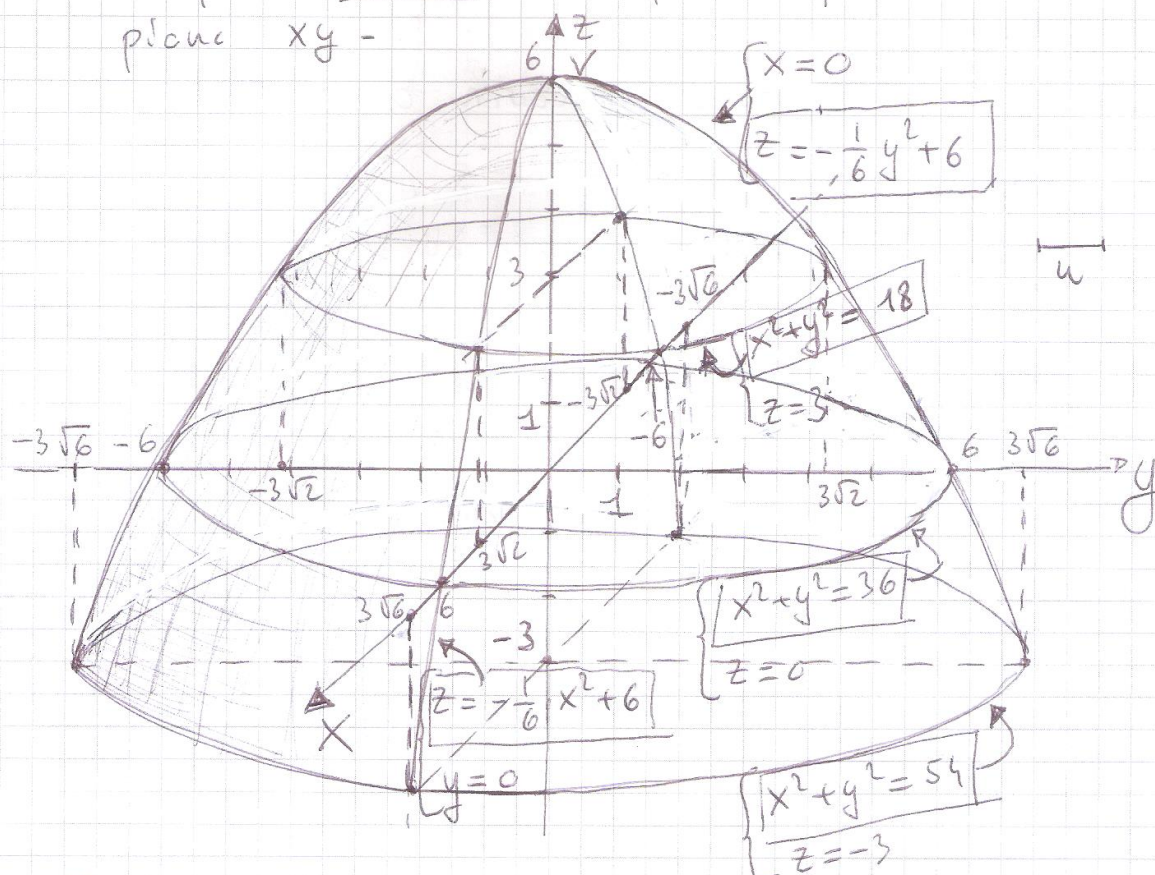 piano xy -
z
6 V
{ x = 0
z = -1/6 y² + 6
u
3
-3√6
{ x² + y² = 18
z = 3
1
-3√2
-6
-3√6 -6
6 3√6
y
-3√2
1
3√2
3√2
3√6 6
{ x² + y² = 36
z = 0
-3
{ z = -1/6 x² + 6
y = 0
x
{ x² + y² = 54
z = -3